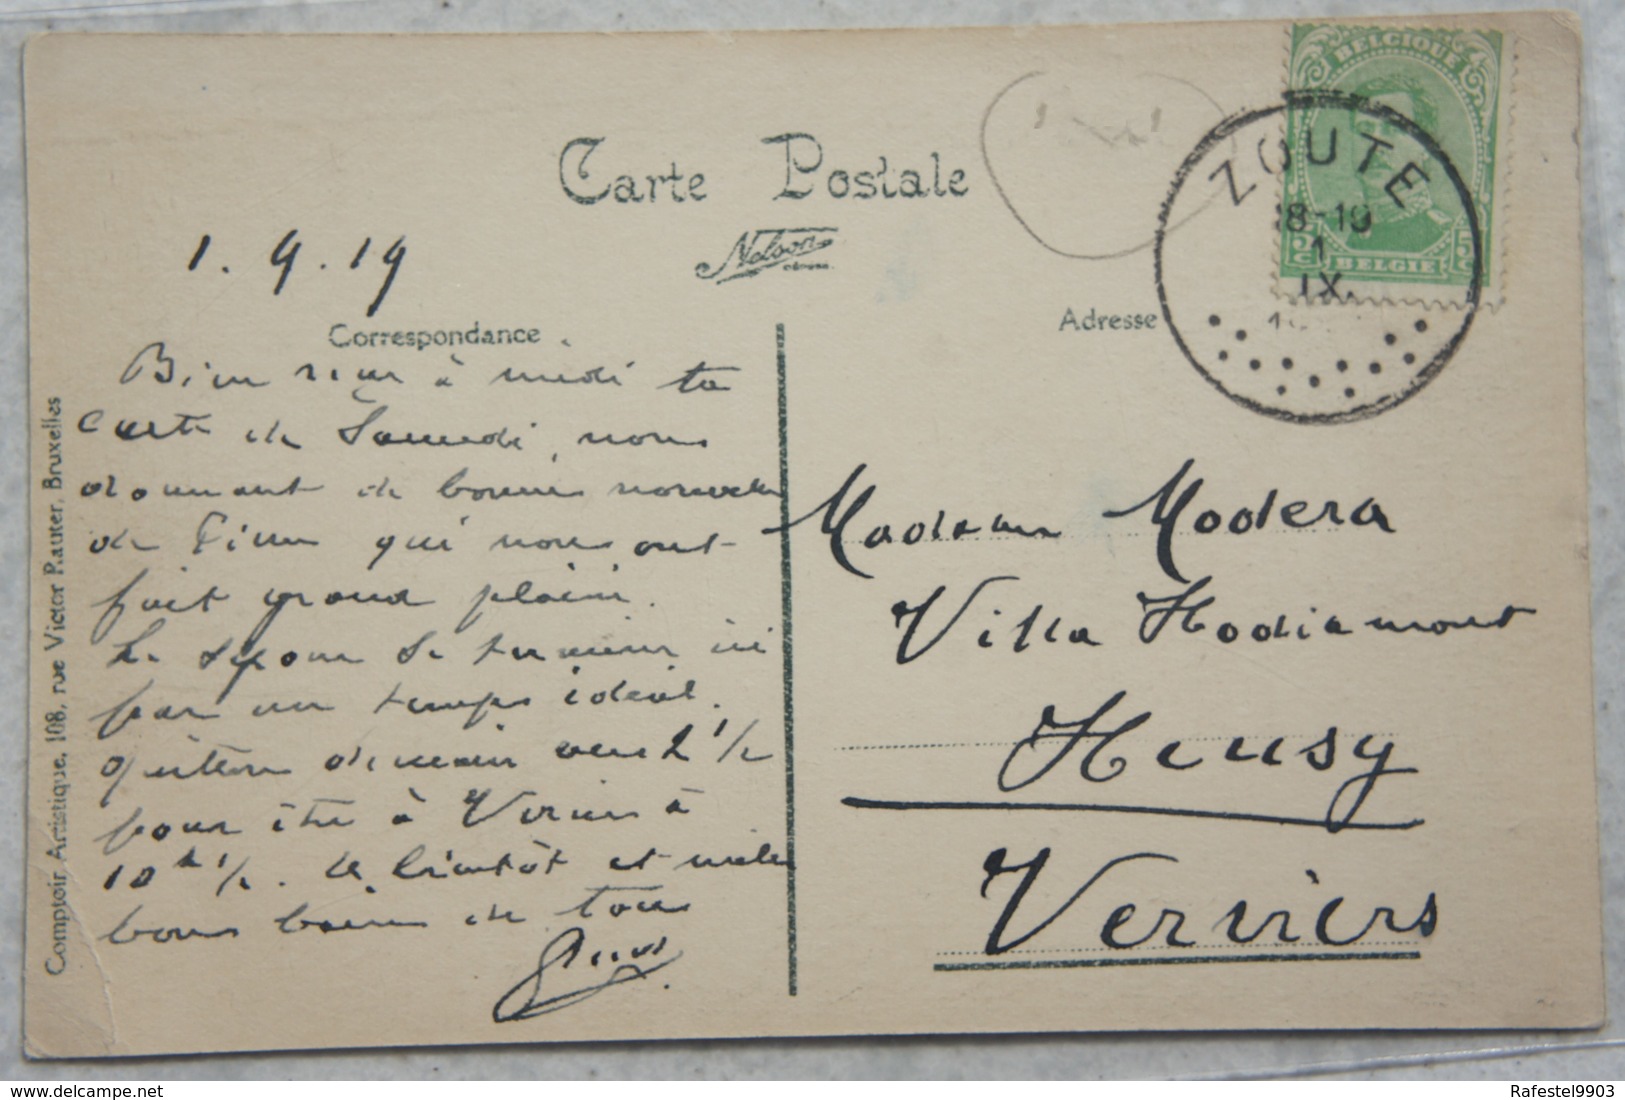 Carte Postale
Nelson
1.9.19
Correspondance
Adresse
BELGIQUE
5 c
5 c
BELGIE
ZOUTE
18-19
1
IX.
Bien reçu à midi ta
carte de Samedi, nous
donnant de bonnes nouvelles
de qui nous ont
fait grand plaisir.
Le séjour se termine ici
par un temps idéal.
Quittons demain vers 2 1/2
pour être à Verviers à
10h 1/2. à bientôt et mille
bons baisers de tous
Madame Modera
Villa Hodiamont
Heusy
Verviers
Comptoir Artistique, 108, rue Victor Rauter, Bruxelles
delcampe.net
Rafestel9903